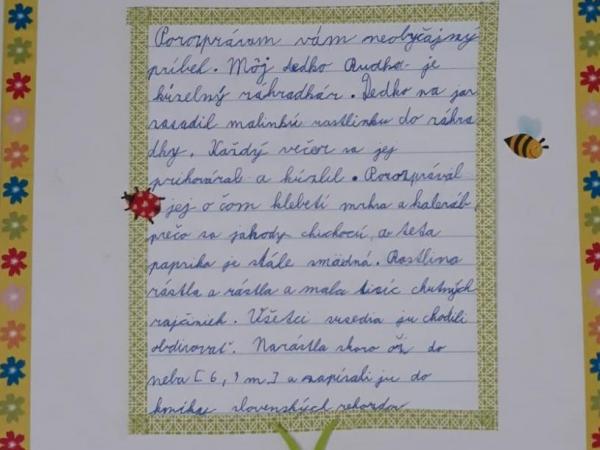 Porozprávam vám neobyčajný
príbeh. Môj dedko Rudko je
kúzelný záhradkár. Dedko na jar
zasadil malinkú rastlinku do záhra
dky. Každý večer sa jej
prihováral a kúzlil. Porozprával
jej o čom klebetí mrkva a kaleráb,
prečo sa jahody chichocú, a teta
paprika je stále smädná. Rastlina
rástla a rástla a mala tisíc chutných
rajčiniek. Všetci susedia ju chodili
obdivovať. Narástla skoro až do
neba [6, 9 m] a zapísali ju do
knihy slovenských rekordov